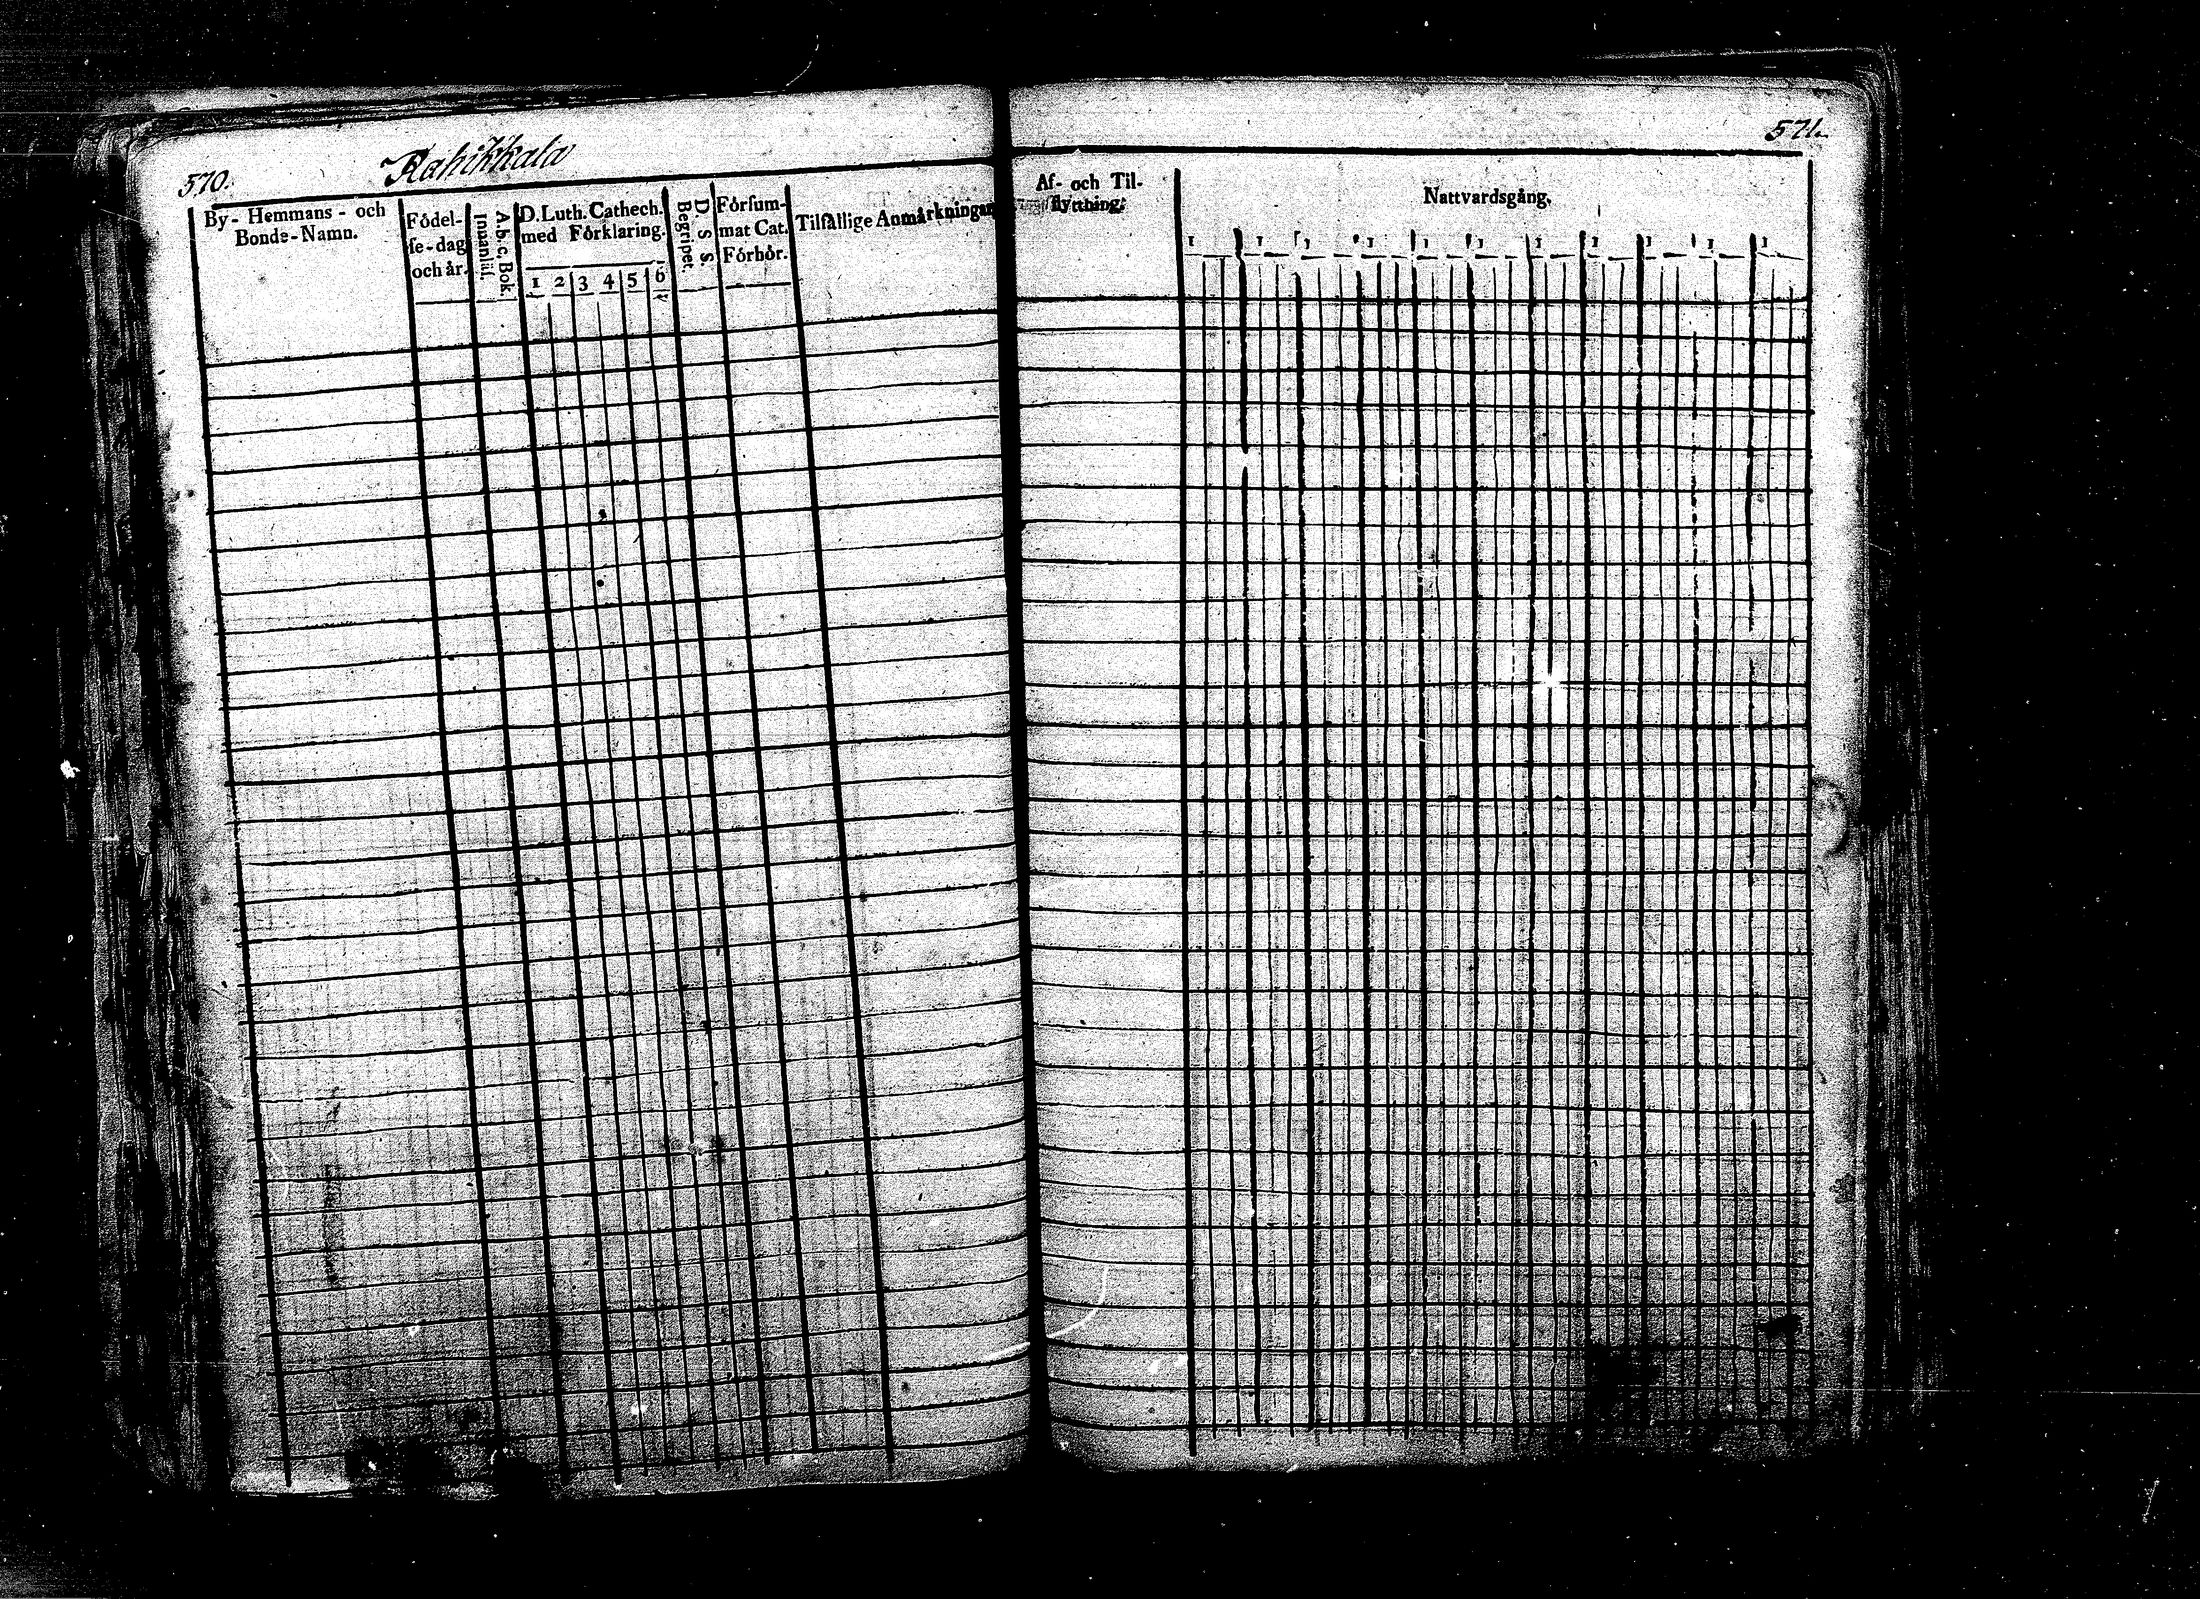 570.
Rahikkala
By- Hemmans- och
Bonde-Namn.
Födel-
se-dag
och år.
A.b.c. Bok.
Innanläs.
D. Luth. Cathech.
med Förklaring.
1 2 3 4 5 6
D. S. S.
Begripet.
Försum-
mat Cat.
Förhör.
Tilfällige Anmärkningar
571.
Af- och Til-
flyttning.
Nattvardsgång.
1 1 1 1 1 1 1 1 1 1 1